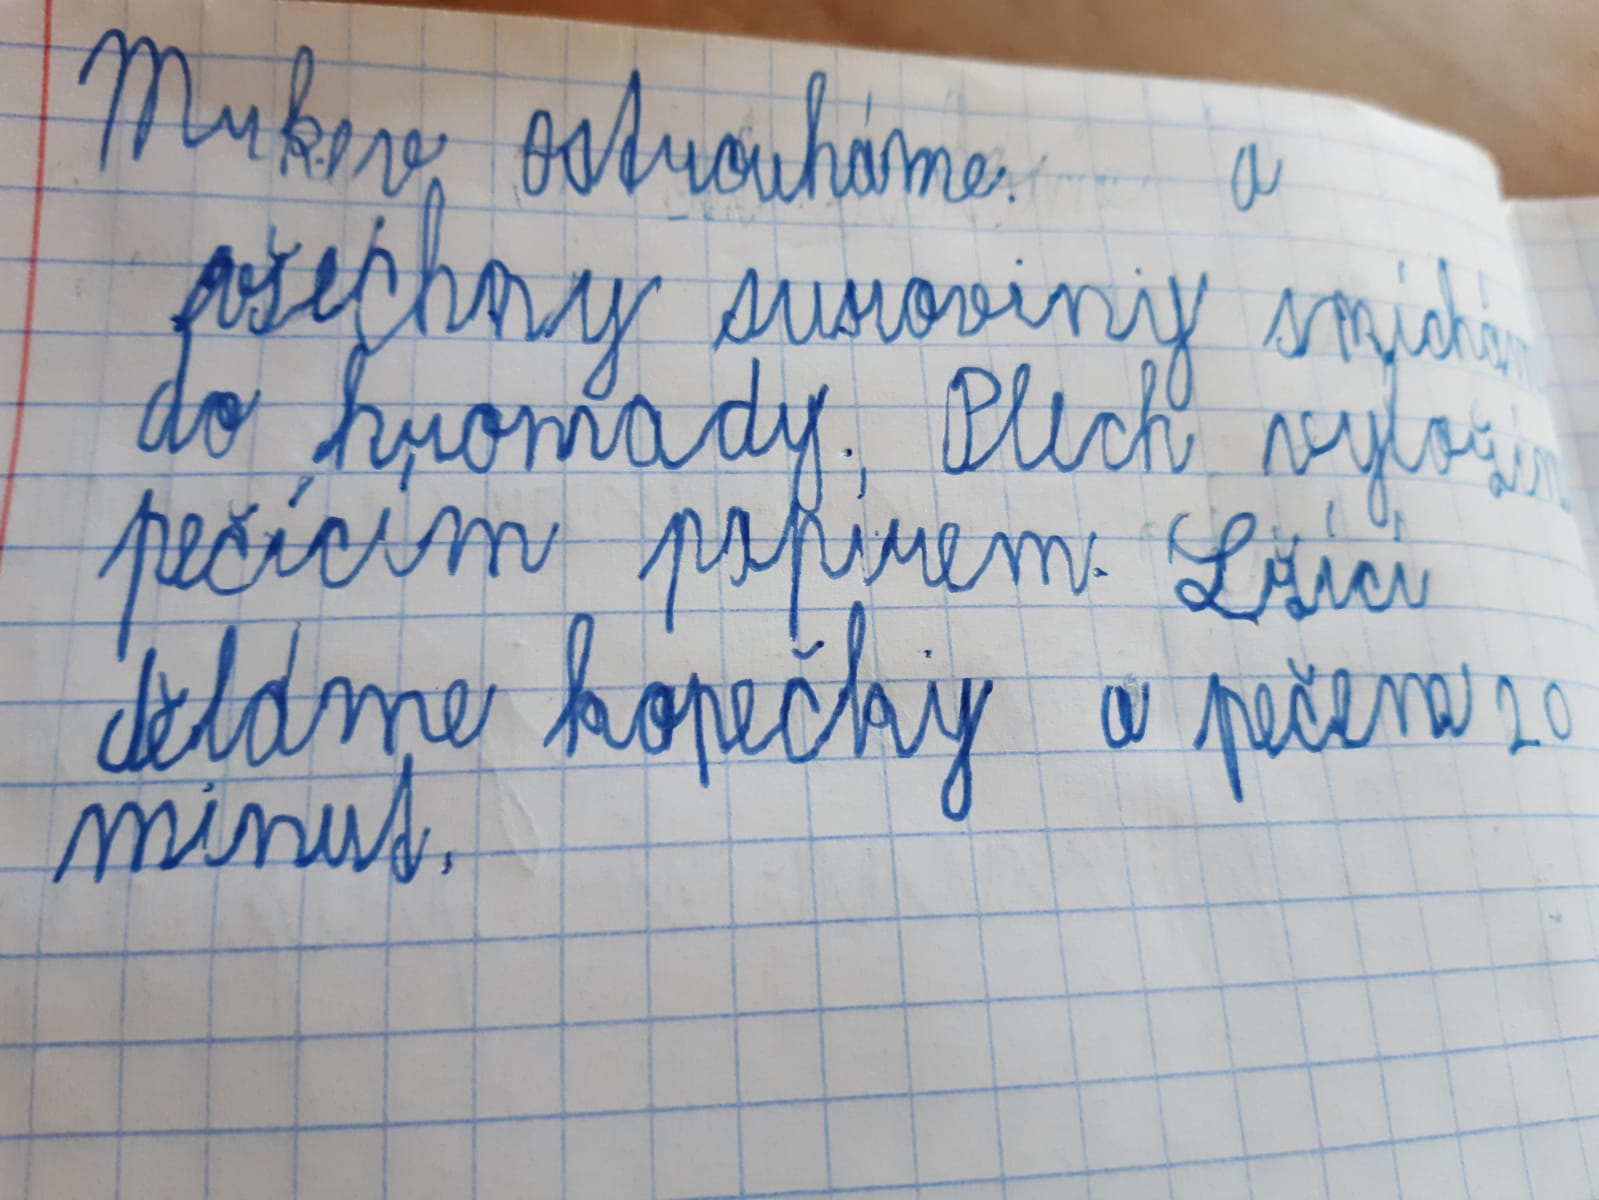 Mrkev ostrouháme. a
všechny suroviny smíchám
do hromady. Plech vyložím
pečícím papírem. Lžící
děláme kopečky a pečem 20
minut.